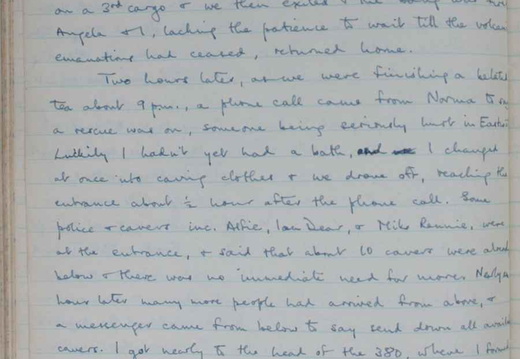 on a 3rd cargo & we then exited & the
Angela & I, lacking the patience to wait till the
emanations had ceased, returned home.
Two hours later, as we were finishing a
tea about 9 pm., a phone call came from Norma to
a rescue was on, someone being seriously hurt in
Luckily I hadn't yet had a bath, I changed
at once into caving clothes & we drove off, reaching the
entrance about ½ hour after the phone call. Some
police & cavers inc. Alfie, Ian Dear, & Mike Rennie, were
at the entrance, & said that about 10 cavers were
below & there was no immediate need for more. Nearly
hour later many more people had arrived from above, &
a messenger came from below to say send down all
cavers. I got nearly to the head of the 380, where I